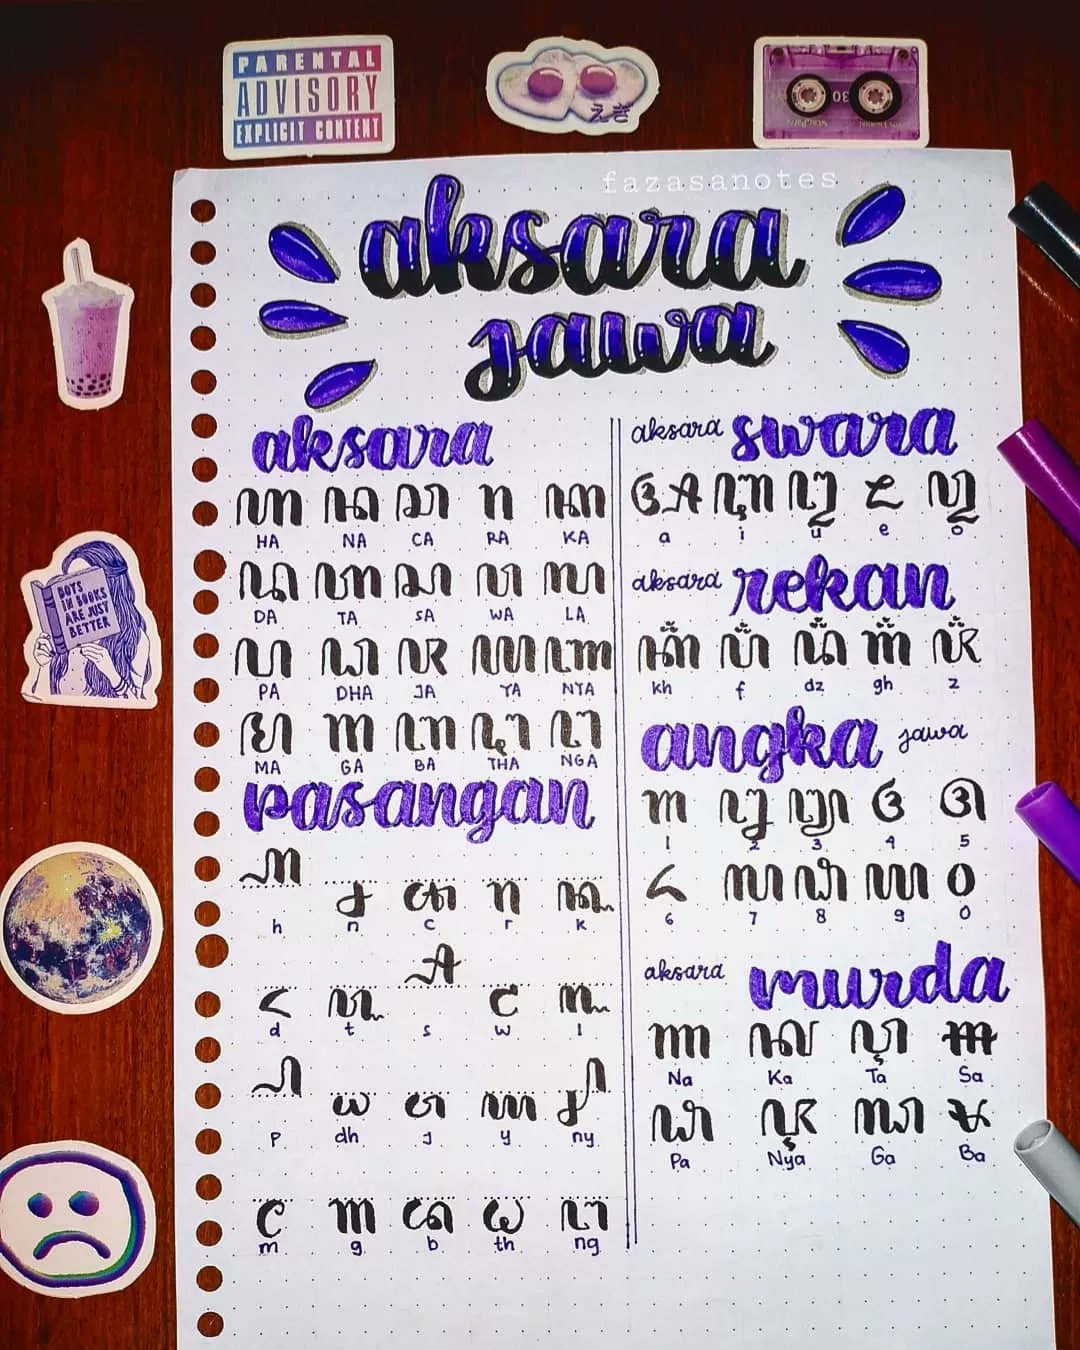 PARENTAL
ADVISORY
EXPLICIT CONTENT
fazasanotes
aksara
jawa
BOYS
IN BOOKS
ARE JUST
BETTER
aksara
ꦲ ꦤ ꦕ ꦫ ꦏ
HA NA CA RA KA
ꦢ ꦠ ꦱ ꦮ ꦭ
DA TA SA WA LA
ꦥ ꦝ ꦗ ꦪ ꦚ
PA DHA JA YA NYA
ꦩ ꦒ ꦧ ꦛ ꦔ
MA GA BA THA NGA
pasangan
꧀ꦲ ꧀ꦤ ꧀ꦕ ꧀ꦫ ꧀ꦏ
h n c r k
꧀ꦢ ꧀ꦠ ꧀ꦱ ꧀ꦮ ꧀ꦭ
d t s w l
꧀ꦥ ꧀ꦝ ꧀ꦗ ꧀ꦪ ꧀ꦚ
p dh j y ny
꧀ꦩ ꧀ꦒ ꧀ꦧ ꧀ꦛ ꧀ꦔ
m g b th ng
aksara swara
ꦄ ꦆ ꦈ ꦌ ꦎ
a i u e o
aksara rekan
ꦏ꦳ ꦥ꦳ ꦢ꦳ ꦒ꦳ ꦗ꦳
kh f dz gh z
angka jawa
꧑ ꧒ ꧓ ꧔ ꧕
1 2 3 4 5
꧖ ꧗ ꧘ ꧙ ꧐
6 7 8 9 0
aksara murda
ꦟ ꦑ ꦡ ꦯ
Na Ka Ta Sa
ꦦ ꦘ ꦓ ꦨ
Pa Nya Ga Ba